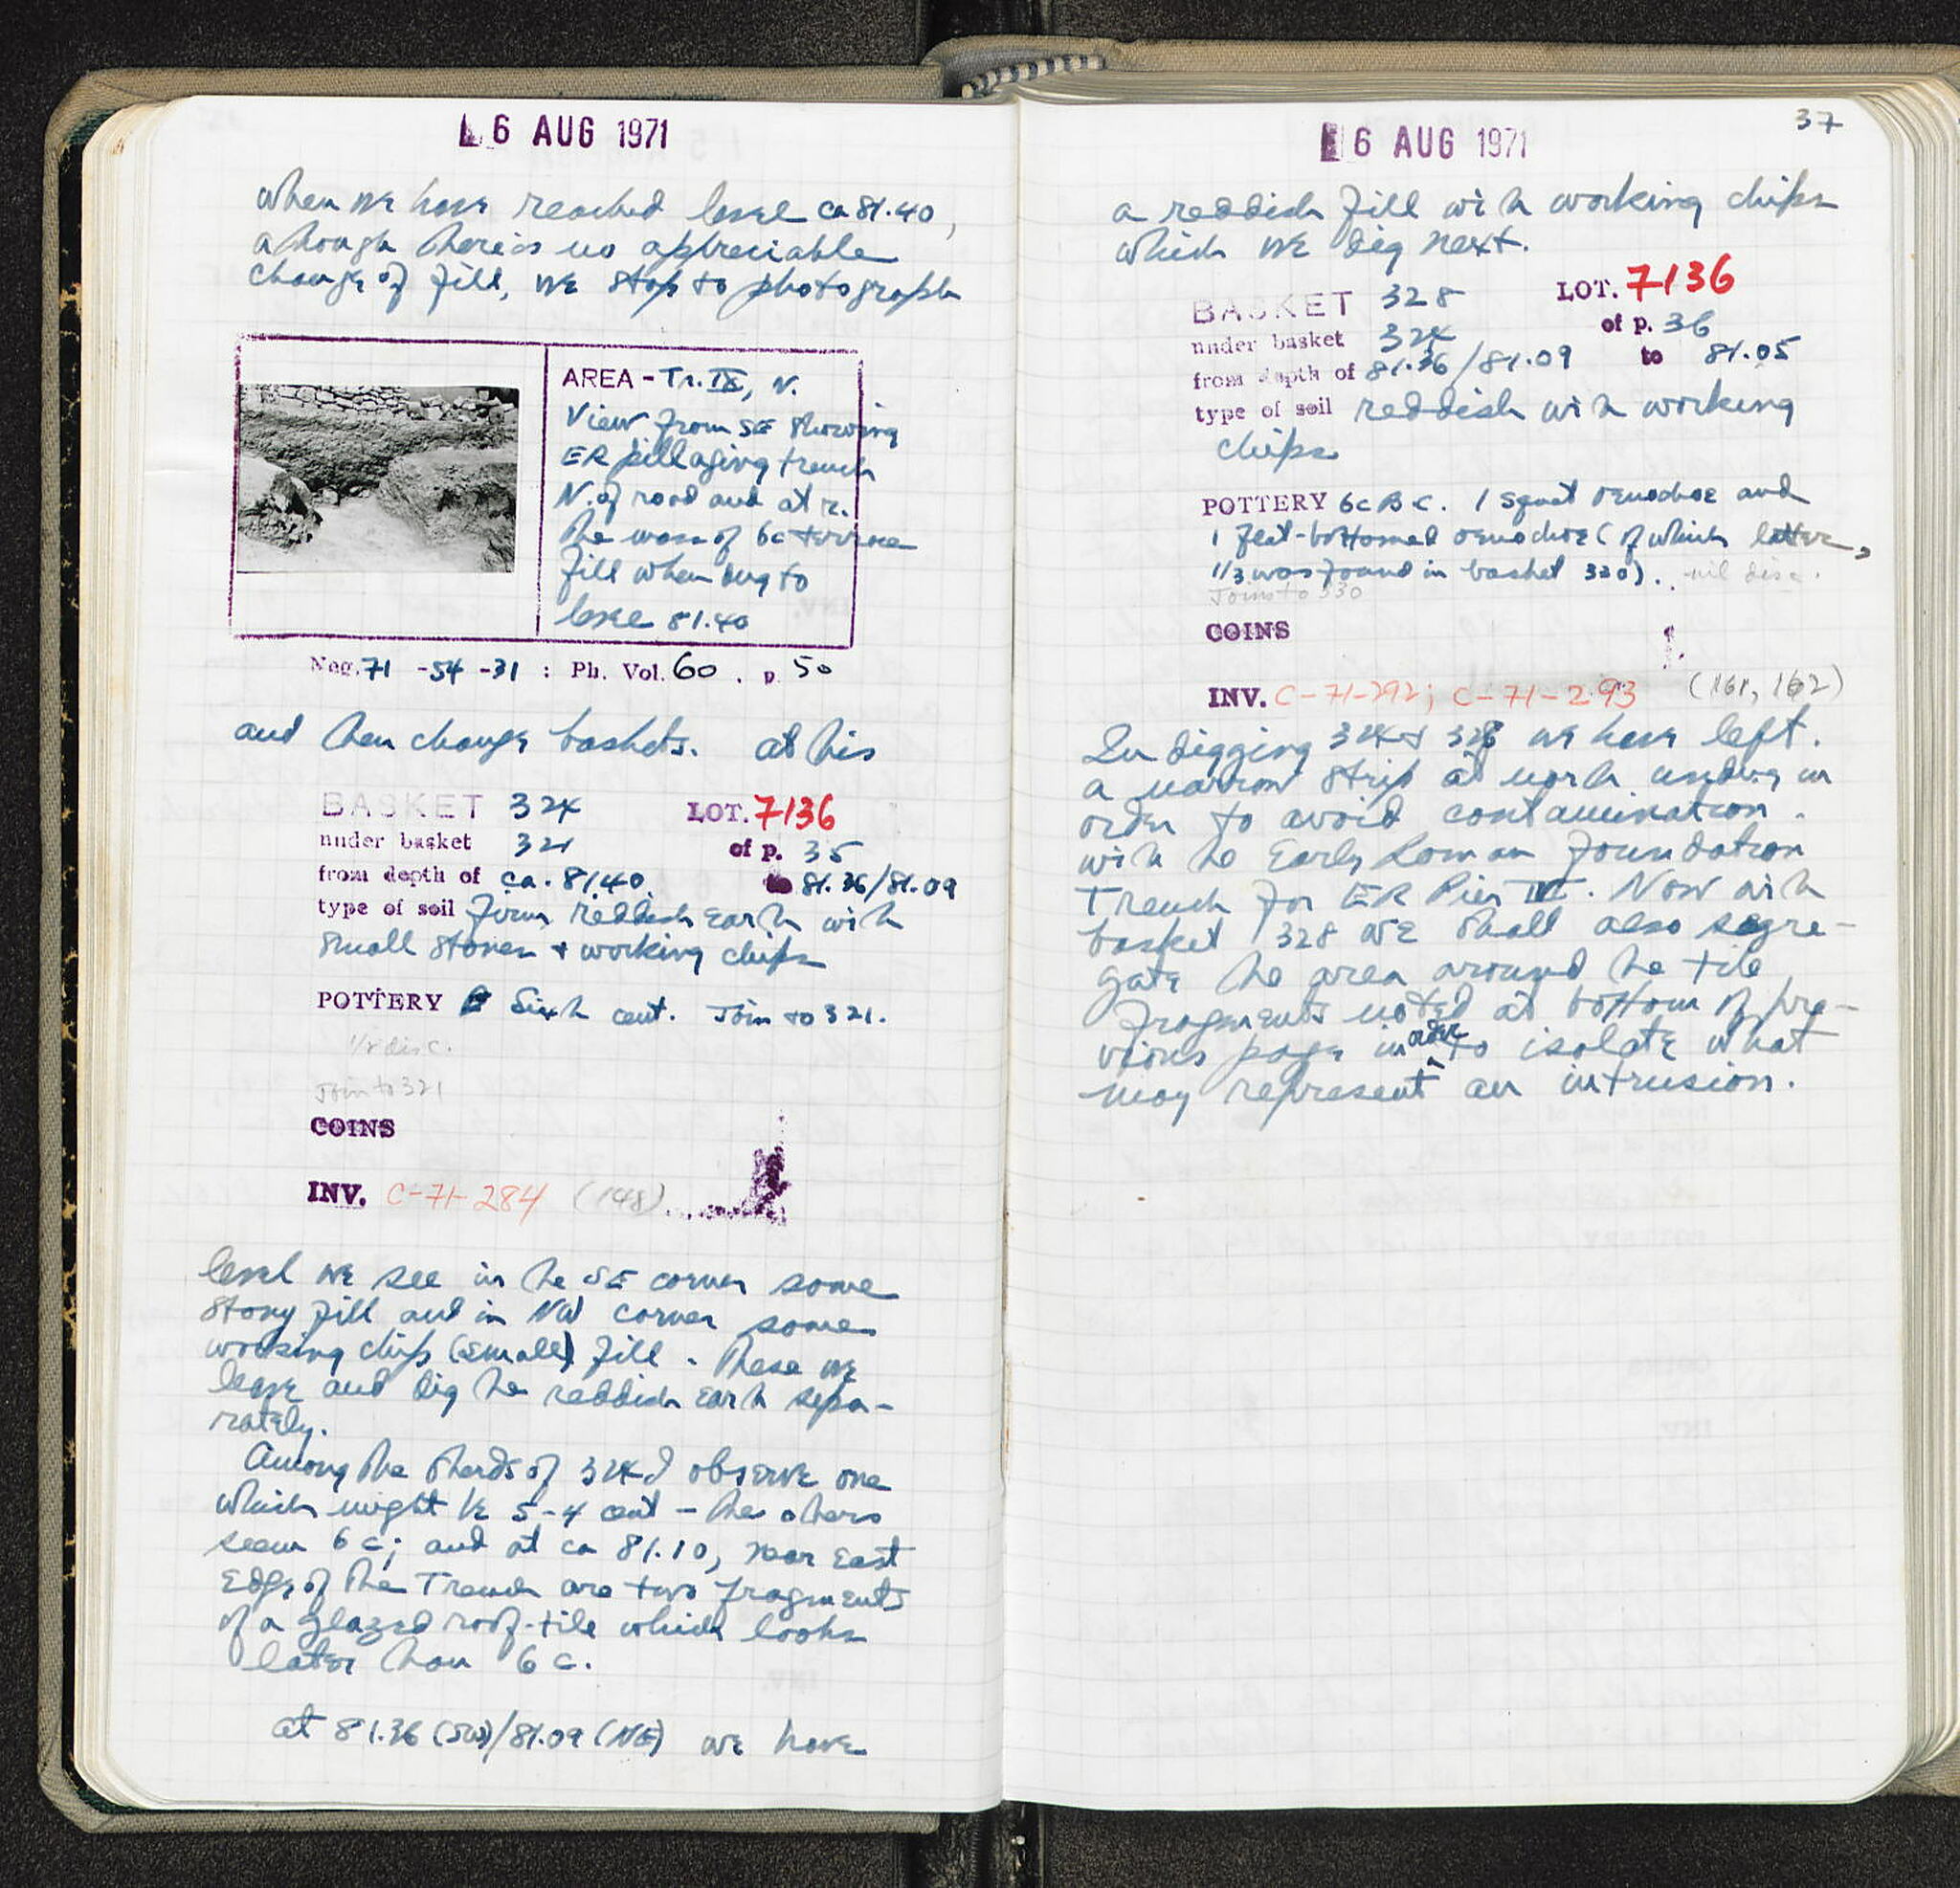 6 AUG 1971
When we have reached level ca 81.40,
although there is no appreciable
change of fill, we stop to photograph
AREA - Tr. IX, N.
View from SE showing
ER pillaging trench
N. of road and at r.
the mass of 6c terrace
fill when dug to
level 81.40
Neg. 71 -54 -31 : Ph. Vol. 60 . p. 50
and then change baskets. At this
BASKET 324 LOT. 7136
under basket 321 of p. 35
from depth of ca. 81.40 to 81.36/81.09
type of soil firm, reddish earth with
small stones + working chips
POTTERY Sixth cent. Join to 321.
1/2 disc.
Join to 321
COINS
INV. C-71-284 (148)
level we see in the SE corner some
stony fill and in NW corner some
working chip (small) fill. These we
leave and dig the reddish earth sepa-
rately.
Among the sherds of 324 I observe one
which might be 5-4 cent - the others
seem 6 c; and at ca 81.10, near East
Edge of the Trench are two fragments
of a glazed roof-tile which looks
later than 6 c.
at 81.36 (SW)/81.09 (NE) we have
37
6 AUG 1971
a reddish fill with working chips
which we dig next.
BASKET 328 LOT. 7136
under basket 324 of p. 36
from depth of 81.36/81.09 to 81.05
type of soil reddish with working
chips
POTTERY 6c BC. 1 squat oenochoe and
1 flat-bottomed oenochoe (of which latter,
1/3 was found in basket 330). nil disc.
Joins to 330
COINS
INV. C-71-292; C-71-293 (161, 162)
In digging 324 + 328 we have left
a narrow strip at north undug in
order to avoid contamination
with the Early Roman foundation
Trench for ER Pier. Now with
basket 328 we shall also segre-
gate the area around the tile
fragments noted at bottom of pre-
vious page in order to isolate what
may represent an intrusion.